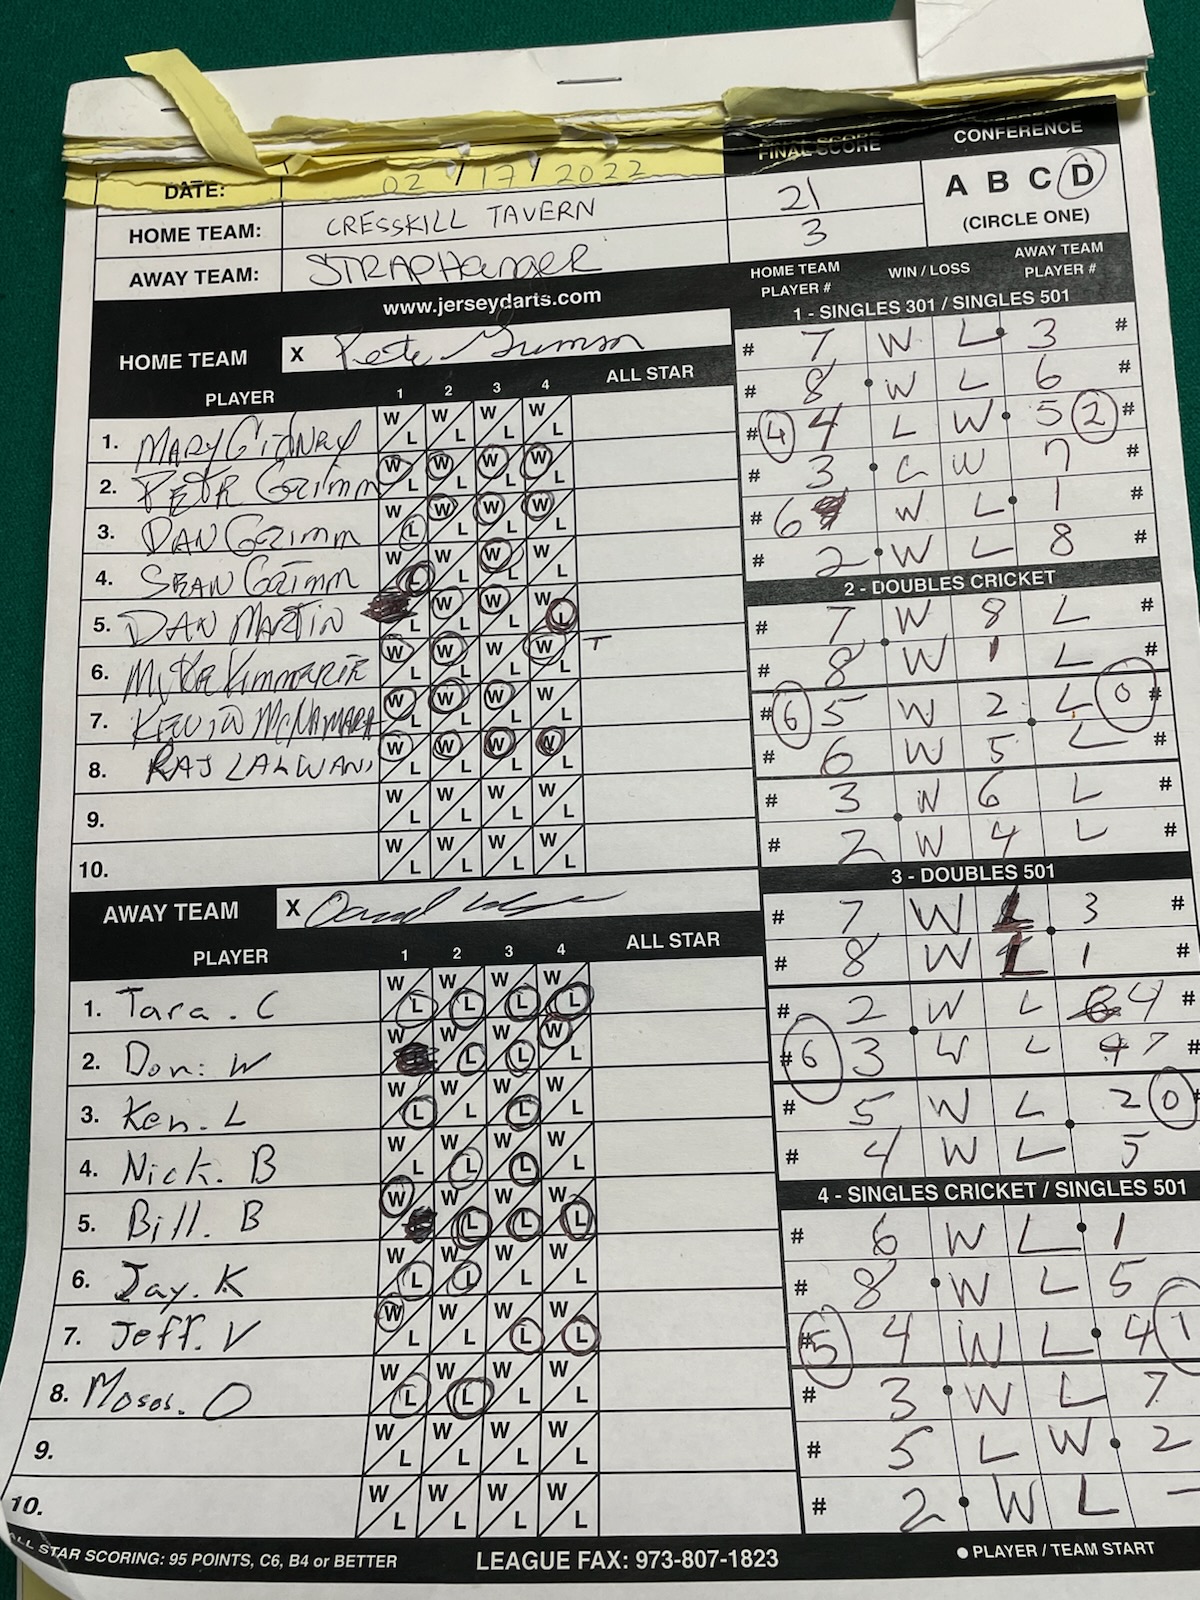 DATE: 02 / 17 / 2022
FINAL SCORE
CONFERENCE
HOME TEAM: CRESSKILL TAVERN
21
A B C D
AWAY TEAM: STRAPHanger
3
(CIRCLE ONE)
www.jerseydarts.com
HOME TEAM X Pete Grimm
PLAYER 1 2 3 4 ALL STAR
1. MARY GIDNEY W L W L W L W L
2. PETR GRIMM W L W L W L W L
3. DAN GRIMM W L W L W L W L
4. SEAN GRIMM W L W L W L W L
5. DAN MARTIN L W L W L W L
6. MYKE KIMMERIE W L W L W L W L T
7. KEVIN McNAMARA W L W L W L W L
8. RAJ LALWANI W L W L W L W L
9. W L W L W L W L
10. W L W L W L W L
AWAY TEAM X
PLAYER 1 2 3 4 ALL STAR
1. Tara. C W L W L W L W L
2. Don: W W W L W L W L
3. Ken. L W L W L W L W L
4. Nick. B W L W L W L W L
5. Bill. B W W L W L W L
6. Jay. K W L W L W L W L
7. Jeff. V W L W L W L W L
8. Moses. O W L W L W L W L
9. W L W L W L W L
10. W L W L W L W L
HOME TEAM PLAYER # WIN / LOSS AWAY TEAM PLAYER #
1 - SINGLES 301 / SINGLES 501
# 7 W L 3 #
# 8 W L 6 #
# 4 4 L W 5 2 #
# 3 L W 7 #
# 6 W L 1 #
# 2 W L 8 #
2 - DOUBLES CRICKET
# 7 W 8 L #
# 8 W 1 L #
# 6 5 W 2 L 0 #
# 6 W 5 L #
# 3 W 6 L #
# 2 W 4 L #
3 - DOUBLES 501
# 7 W L 3 #
# 8 W L 1 #
# 2 W L 4 #
# 6 3 W L 7 #
# 5 W L 2 0 #
# 4 W L 5
4 - SINGLES CRICKET / SINGLES 501
# 6 W L 1
# 8 W L 5
# 5 4 W L 4 1
# 3 W L 7
# 5 L W 2
# 2 W L -
ALL STAR SCORING: 95 POINTS, C6, B4 or BETTER
LEAGUE FAX: 973-807-1823
PLAYER / TEAM START